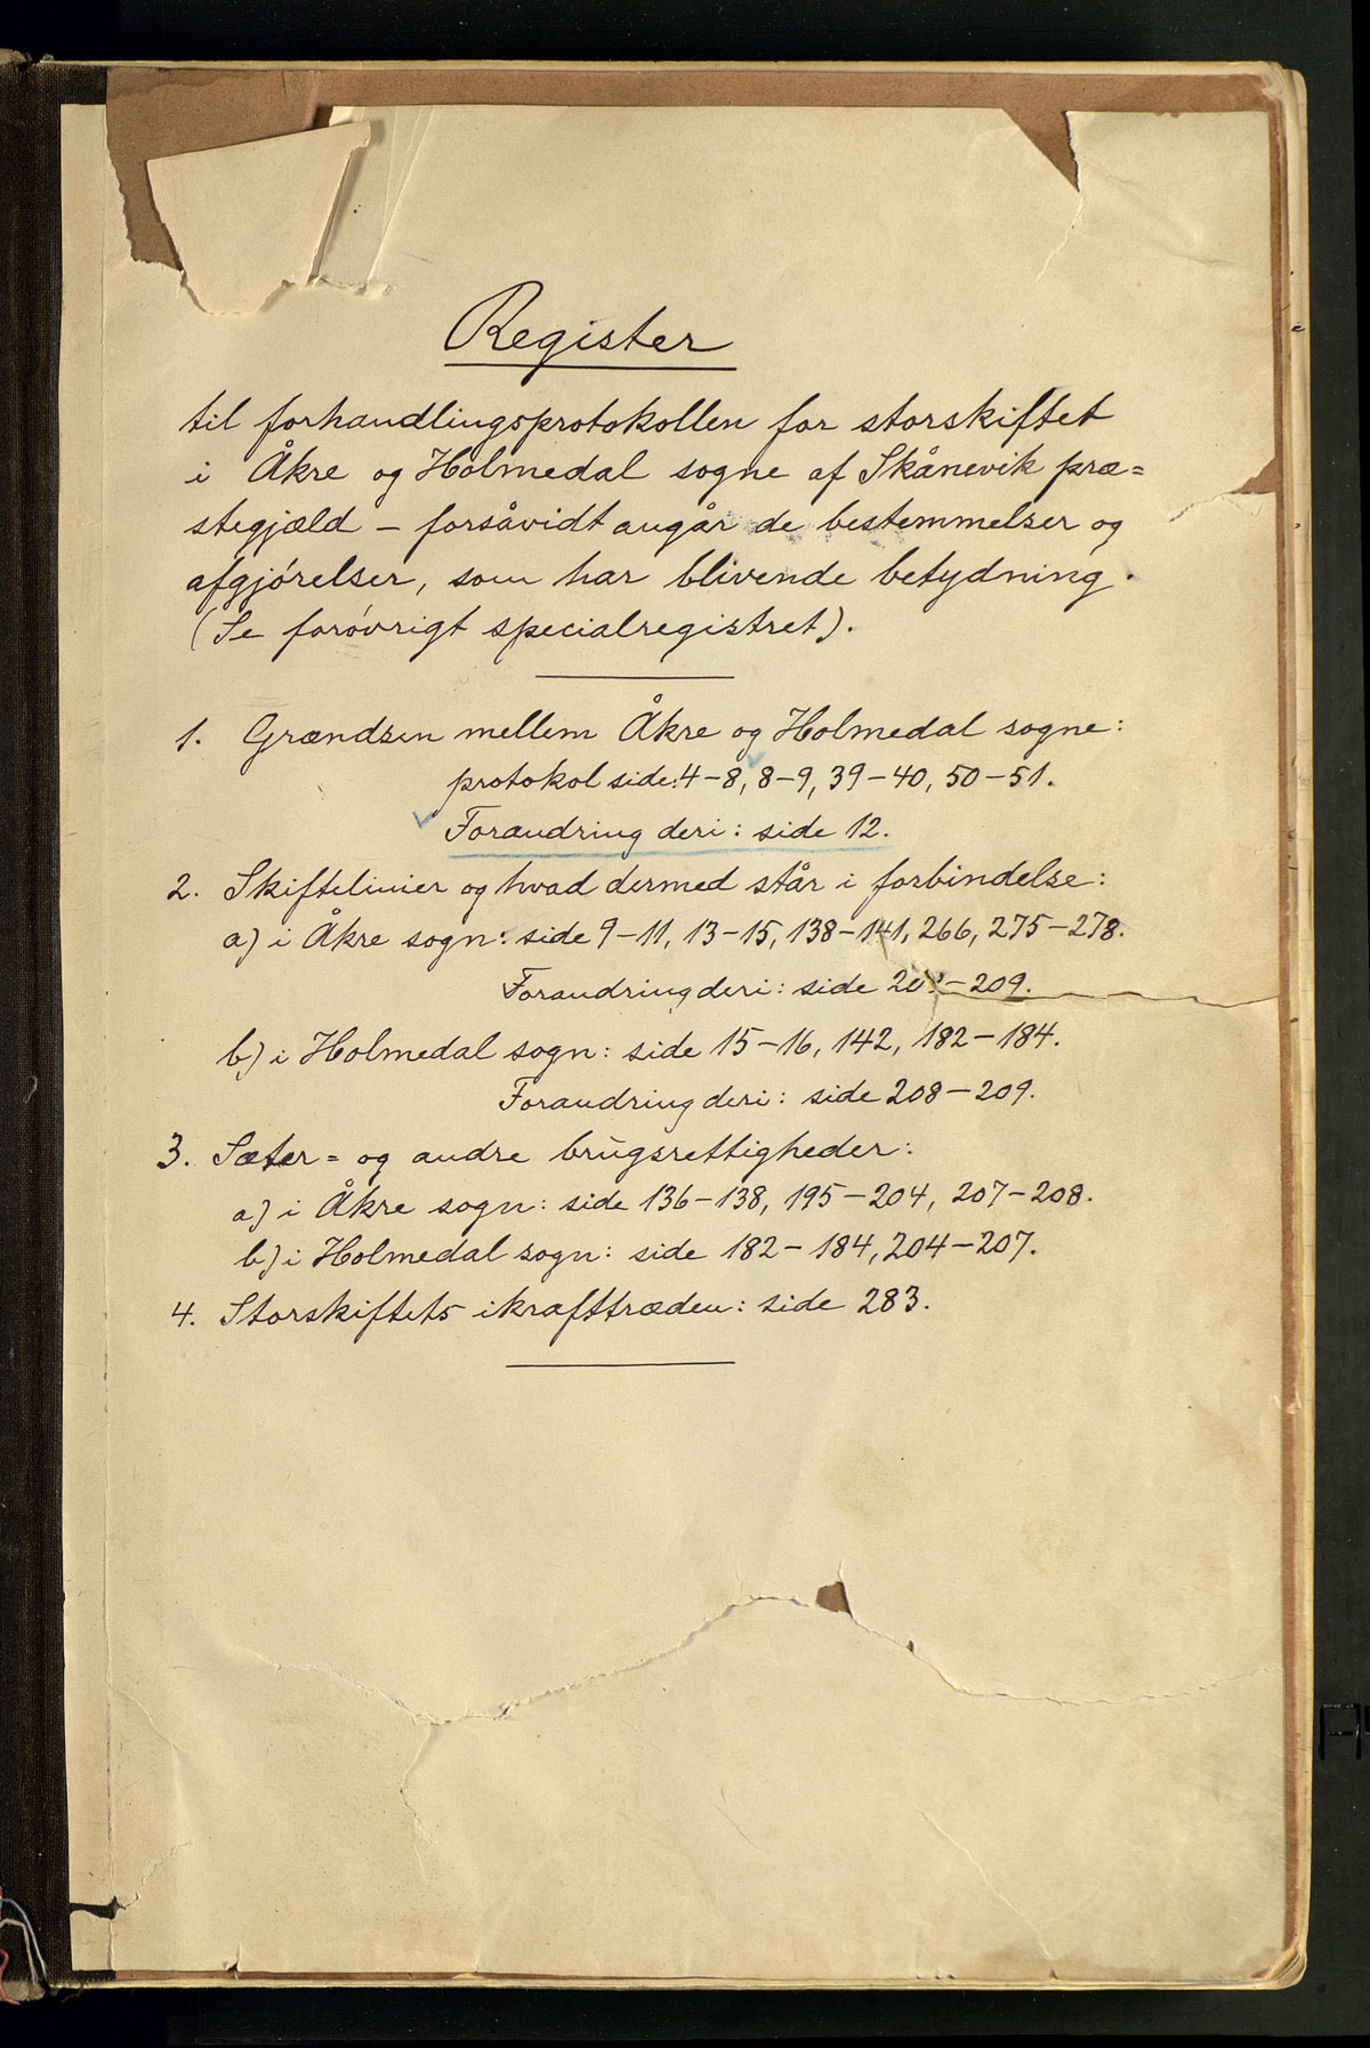 Register
til forhandlingsprotokollen for storskiftet
i Åkre og Holmedal sogne af Skånevik præ=
stegjæld – forsåvidt angår de bestemmelser og
afgjórelser, som har blivende betydning.
(Se foróvrigt specialregistret).
1. Grændsen mellem Åkre og Holmedal sogne:
protokol side: 4–8, 8–9, 39–40, 50–51.
Forandring deri: side 12.
2. Skiftelinier og hvad dermed står i forbindelse:
a) i Åkre sogn: side 9–11, 13–15, 138–141, 266, 275–278.
Forandring deri: side –209.
b) i Holmedal sogn: side 15–16, 142, 182–184.
Forandring deri: side 208–209.
3. Sæter= og andre brugsrettigheder:
a) i Åkre sogn: side 136–138, 195–204, 207–208.
b) i Holmedal sogn: side 182–184, 204–207.
4. Storskiftets ikrafttræden: side 283.